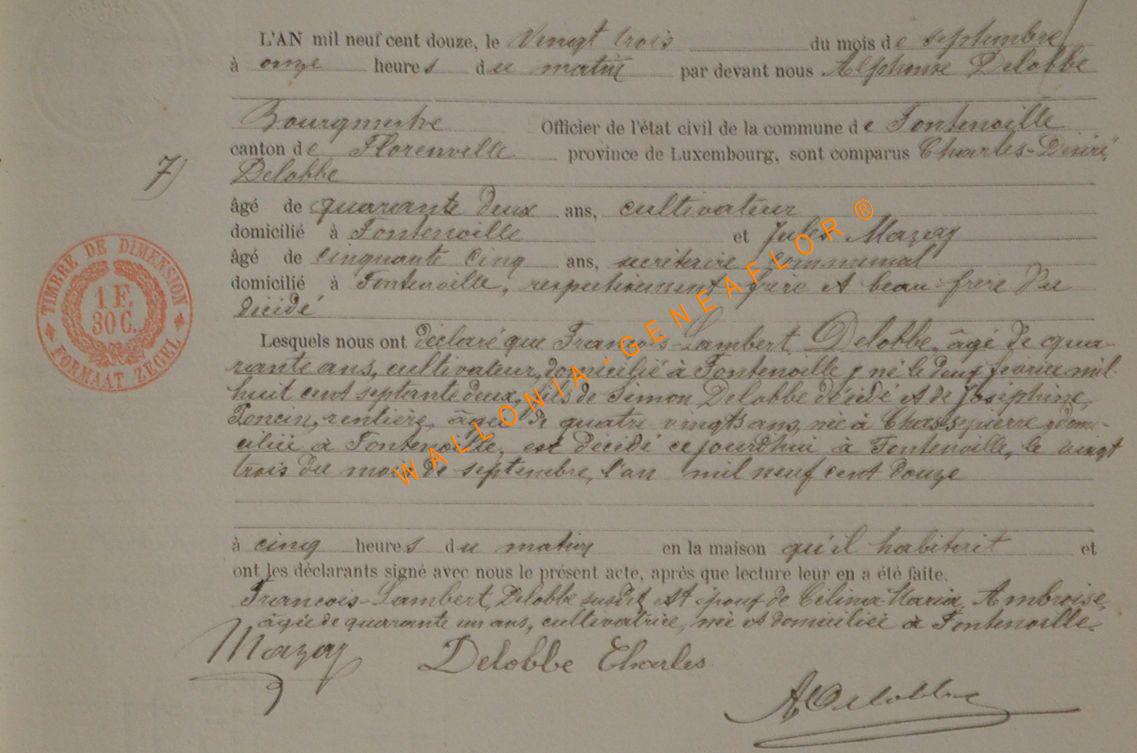 L'AN mil neuf cent douze, le vingt trois du mois de septembre
à onze heures du matin par devant nous Alphonse Delobbe
Bourgmestre Officier de l'état civil de la commune de Fontenoille
canton de Florenville province de Luxembourg, sont comparus Charles-Désiré
7)
Delobbe
âgé de quarante deux ans, cultivateur
domicilié à Fontenoille et Jules Mazay
âgé de cinquante cinq ans, secrétaire communal
domicilié à Fontenoille, respectivement frère et beau-frère du
décédé
Lesquels nous ont déclaré que François-Lambert Delobbe, âgé de qua-
rante ans, cultivateur, domicilié à Fontenoille, né le douze février mil
huit cent septante deux, fils de Simon Delobbe décédé et de Joséphine
Poncin, rentière, âgée de quatre vingts ans, née à Chassepierre, domi-
ciliée à Fontenoille, est décédé ce jourd'hui à Fontenoille, le vingt
trois du mois de septembre, l'an mil neuf cent douze
à cinq heures du matin en la maison qu'il habitait et
ont les déclarants signé avec nous le présent acte, après que lecture leur en a été faite.
François-Lambert Delobbe susdit est époux de Célina Maria Ambroise,
âgée de quarante un ans, cultivatrice, née et domiciliée à Fontenoille.
Mazay Delobbe Charles
A Delobbe
TIMBRE DE DIMENSION
1 F.
30 C.
FORMAAT ZEGEL
WALLONIA-GENEAFLOR ®